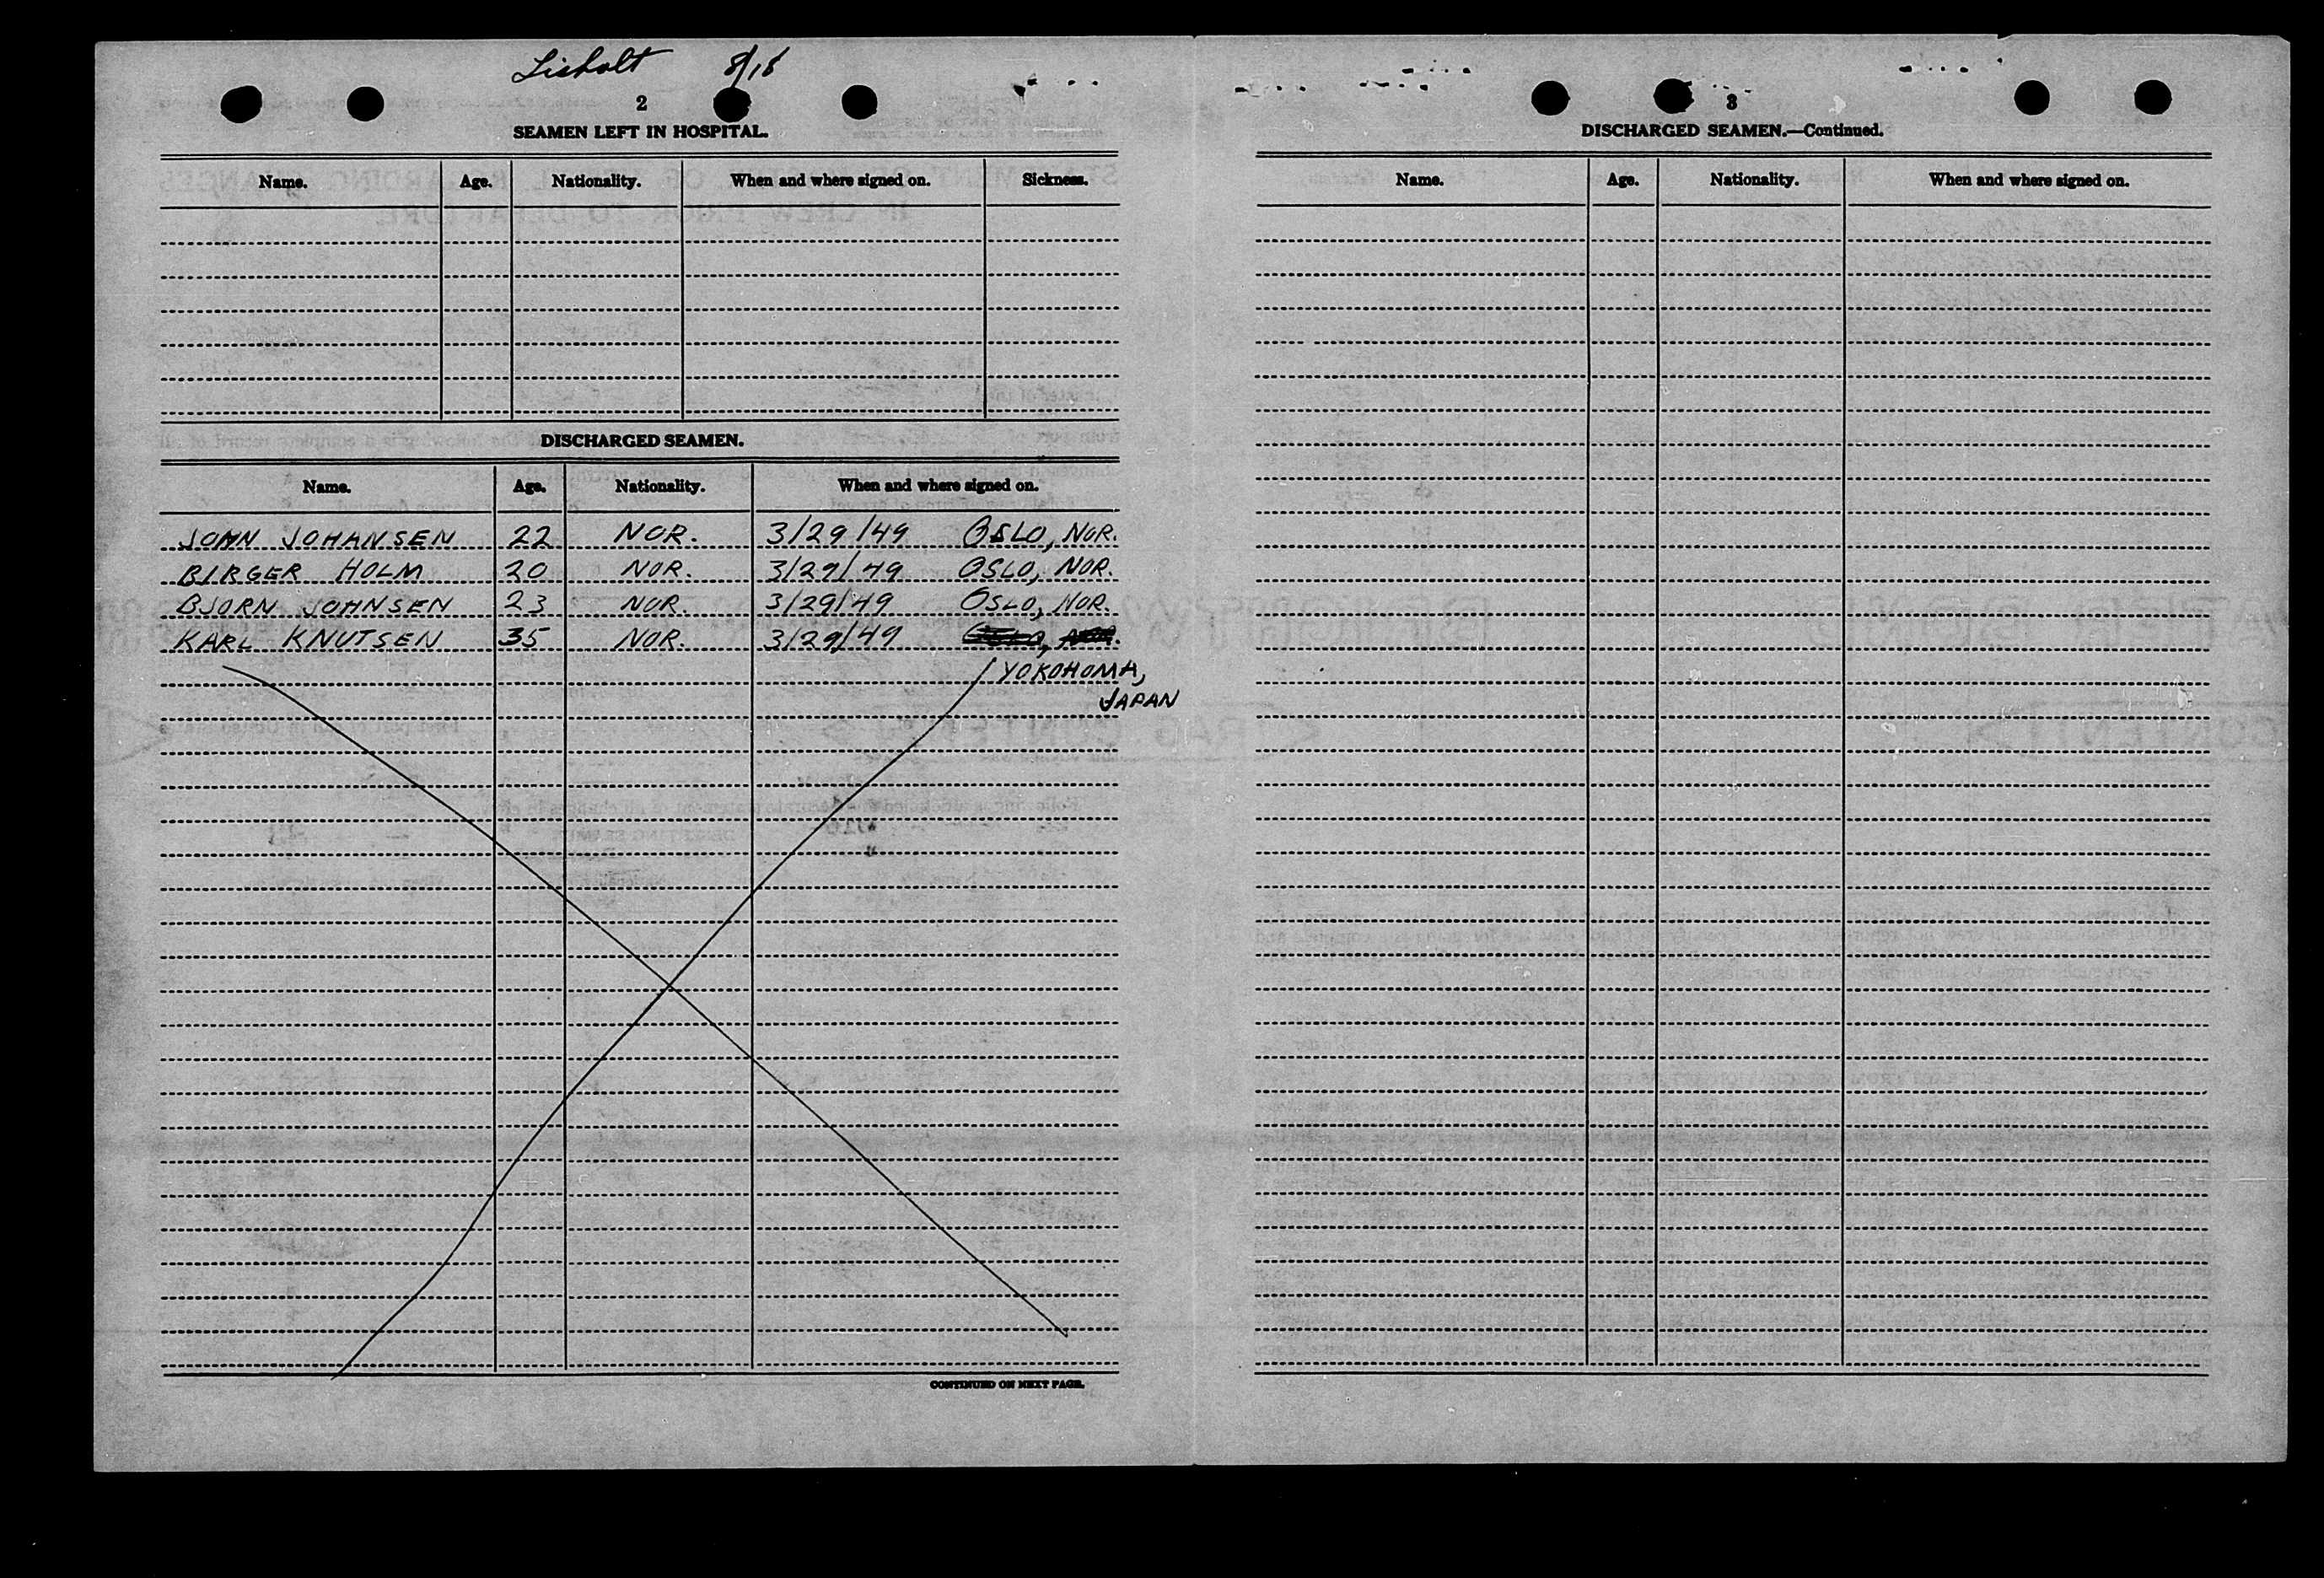 Lisholt 8/18
2
SEAMEN LEFT IN HOSPITAL.
Name. Age. Nationality. When and where signed on. Sickness.
DISCHARGED SEAMEN.
Name. Age. Nationality. When and where signed on.
JOHN JOHANSEN 22 NOR. 3/29/49 OSLO, NOR.
BIRGER HOLM 20 NOR. 3/29/49 OSLO, NOR.
BJORN JOHNSEN 23 NOR. 3/29/49 OSLO, NOR.
KARL KNUTSEN 35 NOR. 3/29/49 OSLO, NOR.
YOKOHOMA,
JAPAN
CONTINUED ON NEXT PAGE.
3
DISCHARGED SEAMEN.—Continued.
Name. Age. Nationality. When and where signed on.